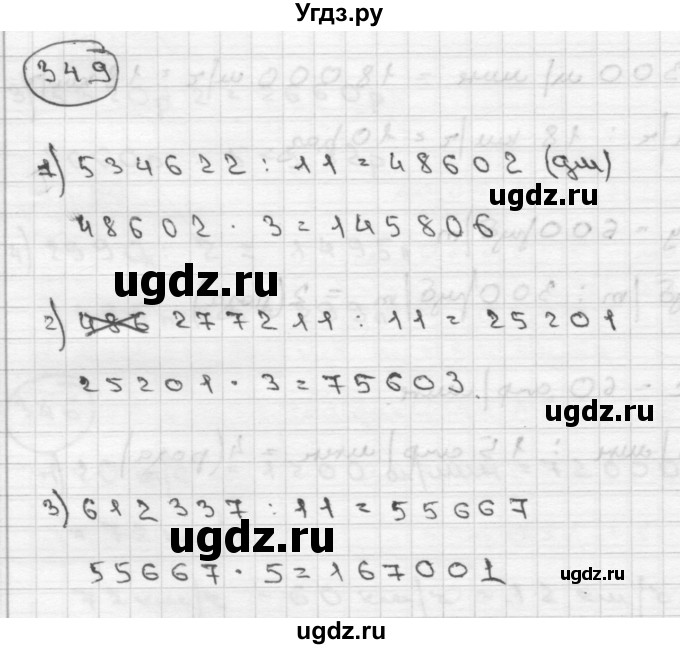 Угдз.ру
349
1) 534622 : 11 = 48602 (дм)
ugdz.ru
48602 · 3 = 145806
ugdz.ru
2) 486 277211 : 11 = 25201
25201 · 3 = 75603.
ugdz.ru
3) 612337 : 11 = 55667
ugdz.ru
55667 · 5 = 167001
ugdz.ru
ugdz.ru